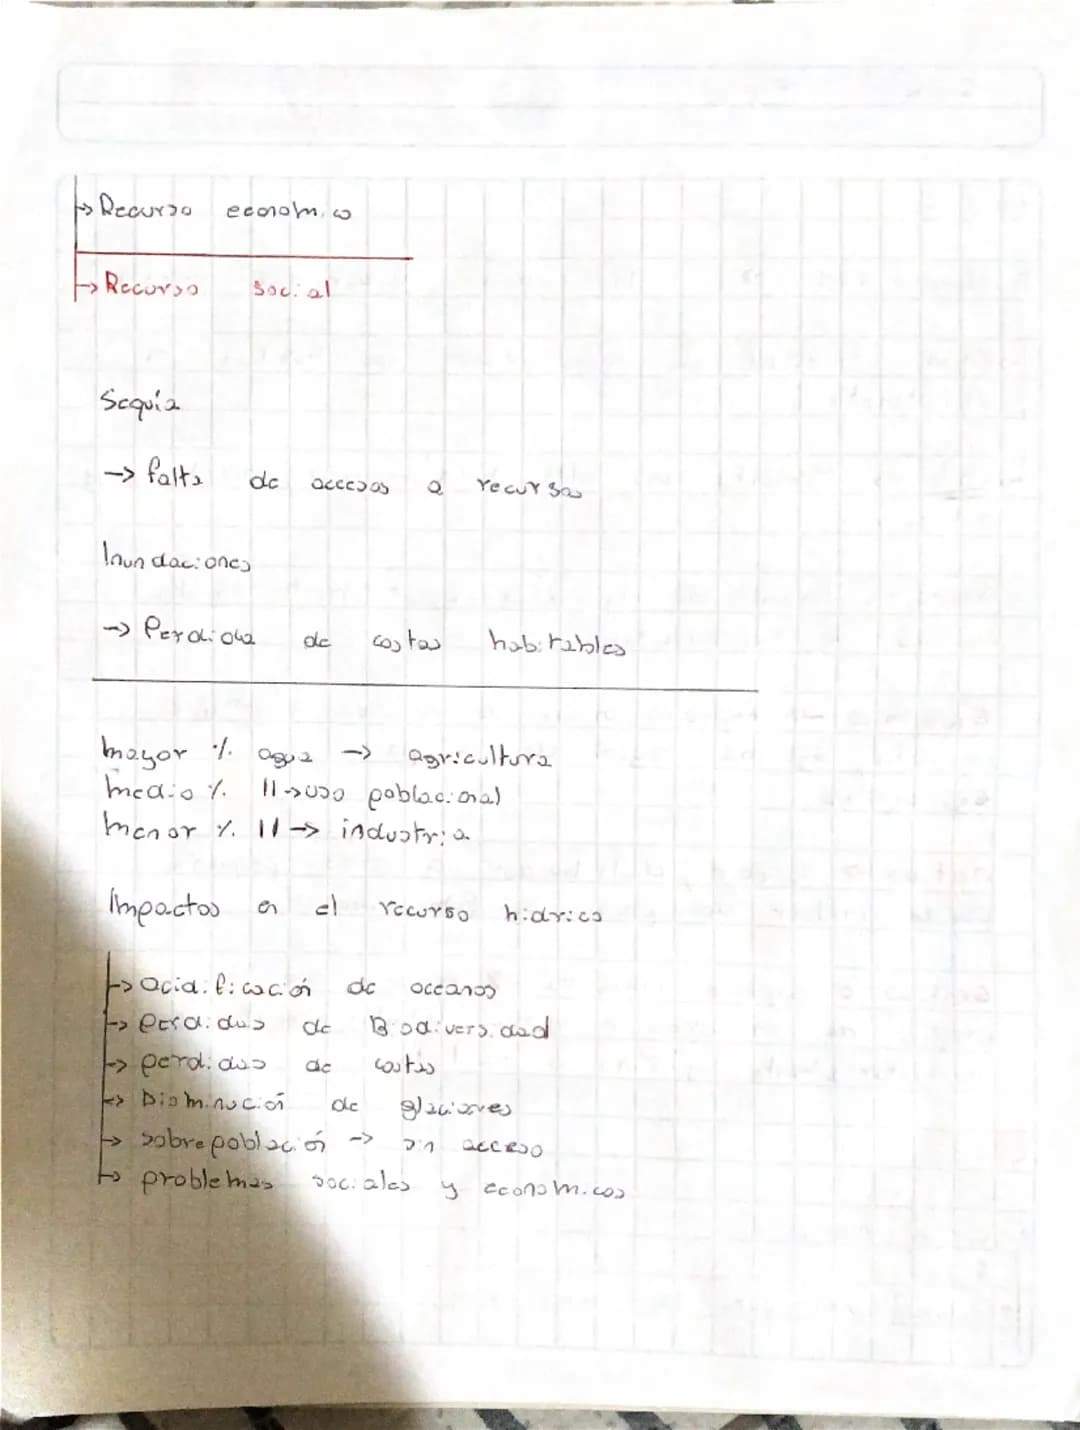 → Recurso economico
→ Recurso social
Sequia
→ falta de accesos a recursos
Inundaciones
→ Perdida de costas habitables
mayor % agua → agricultura
medio % 11 → uso poblacional
menor % 11 → industria
Impactos en el recurso hidrico
→ acidificación de oceanos
→ Perdidas de Biodiversidad
→ perdidas de costas
→ Disminución de glaciares
→ sobrepoblación → sin acceso
→ problemas sociales y economicos